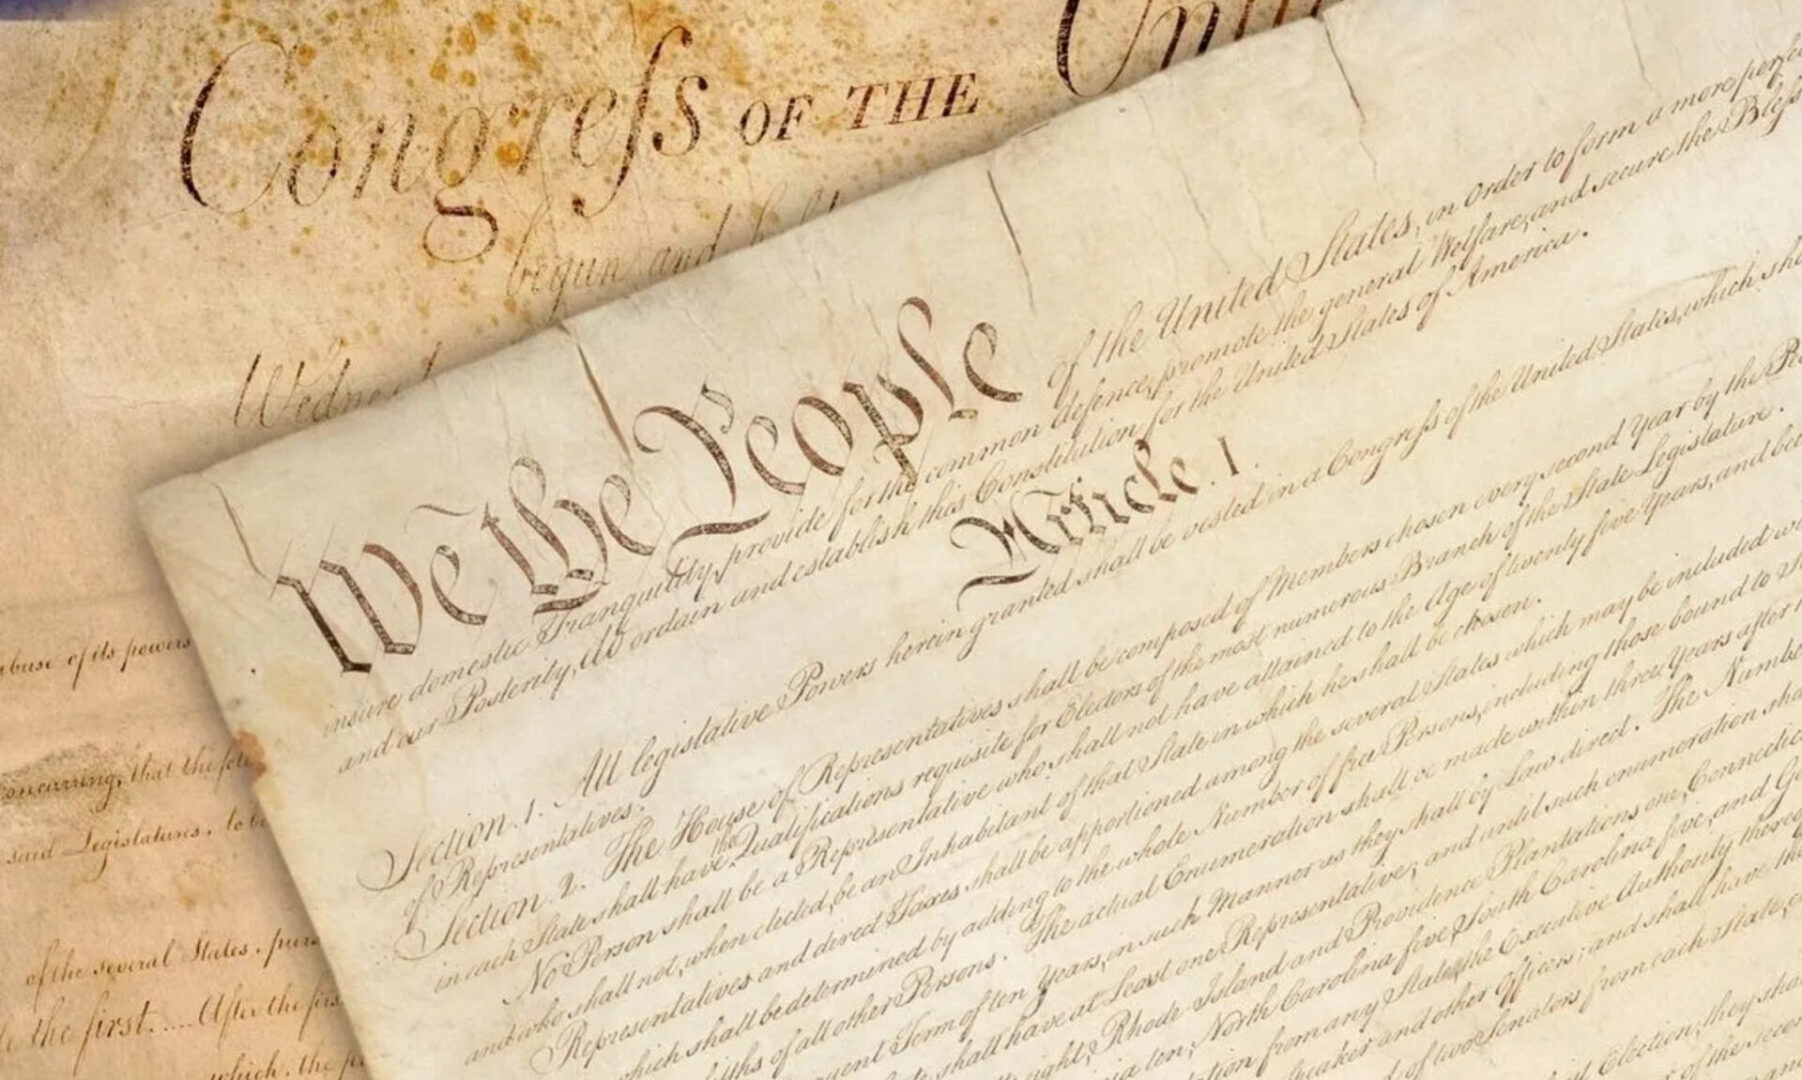 Congreſs OF THE
begun and
abuse of its powers
concurring, that the
said Legislatures, to be
of the several States,
the first..... After the
which, the
We the People of the United States, in Order to form a more
insure domestic Tranquility, provide for the common defence, promote the general Welfare, and secure the
and our Posterity, do ordain and establish this Constitution for the United States of America.
Article. I.
Section. 1. All legislative Powers herein granted shall be vested in a Congreſs of the United States, which
of Representatives.
Section. 2. The House of Representatives shall be composed of Members chosen every second Year by the
in each State shall have the Qualifications requisite for Electors of the most numerous Branch of the State Legislature.
No Person shall be a Representative who shall not have attained to the Age of twenty five Years, and
and who shall not, when elected, be an Inhabitant of that State in which he shall be chosen.
Representatives and direct Taxes shall be apportioned among the several States which may be included
which shall be determined by adding to the whole Number of free Persons, including those bound to
of all other Persons. The actual Enumeration shall be made within three Years after
Term of ten Years, in such Manner as they shall by Law direct. The
shall have at Least one Representative; and until such enumeration
Rhode Island and Providence Plantations one,
ten, North Carolina five, South Carolina five, and
from any State, the Executive Authority
and other Officers; and shall have the
of two Senators from each State,
Election, they
of the